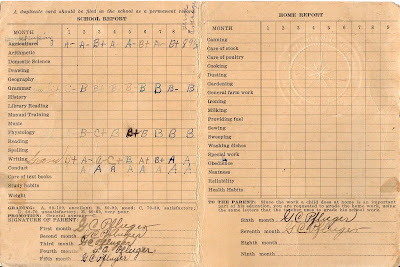 A duplicate card should be filed as the school as a permanent record.
SCHOOL REPORT
MONTH 1 2 3 4 5 6 7 8
Agriculture A- A- B+ A A B+ A- B+
Arithmetic
Domestic Science
Drawing
Geography
Grammar B B B B- B
History
Library Reading
Manual Training
Music
Physiology B B C B B+ B B B B
Reading
Spelling
Writing C+ A- C A- B A+ B+ A A
Conduct A A A A A A A
Care of text books
Study habits
Weight
GRADING: A, 90-100, excellent; B, 80-90, good; C, 70-80, satisfactory;
PROMOTION: General average
SIGNATURE OF PARENT:
First month G C Pflueger
Second month G C Pflueger
Third month G C Pflueger
Fourth month G C Pflueger
Fifth month G C Pflueger
HOME REPORT
MONTH 1 2 3 4 5 6 7 8
Canning
Care of stock
Care of poultry
Cooking
Dusting
Gardening
General farm work
Ironing
Milking
Providing fuel
Sewing
Sweeping
Washing dishes
Special work
Obedience
Neatness
Reliability
Health Habits
TO THE PARENT: Since the work a child does at home is an important
part of his education, you are requested to grade the home work, using
the same letters that the teacher uses to grade his school work.
Sixth month G C Pflueger
Seventh month G C Pflueger
Eighth month
Ninth month